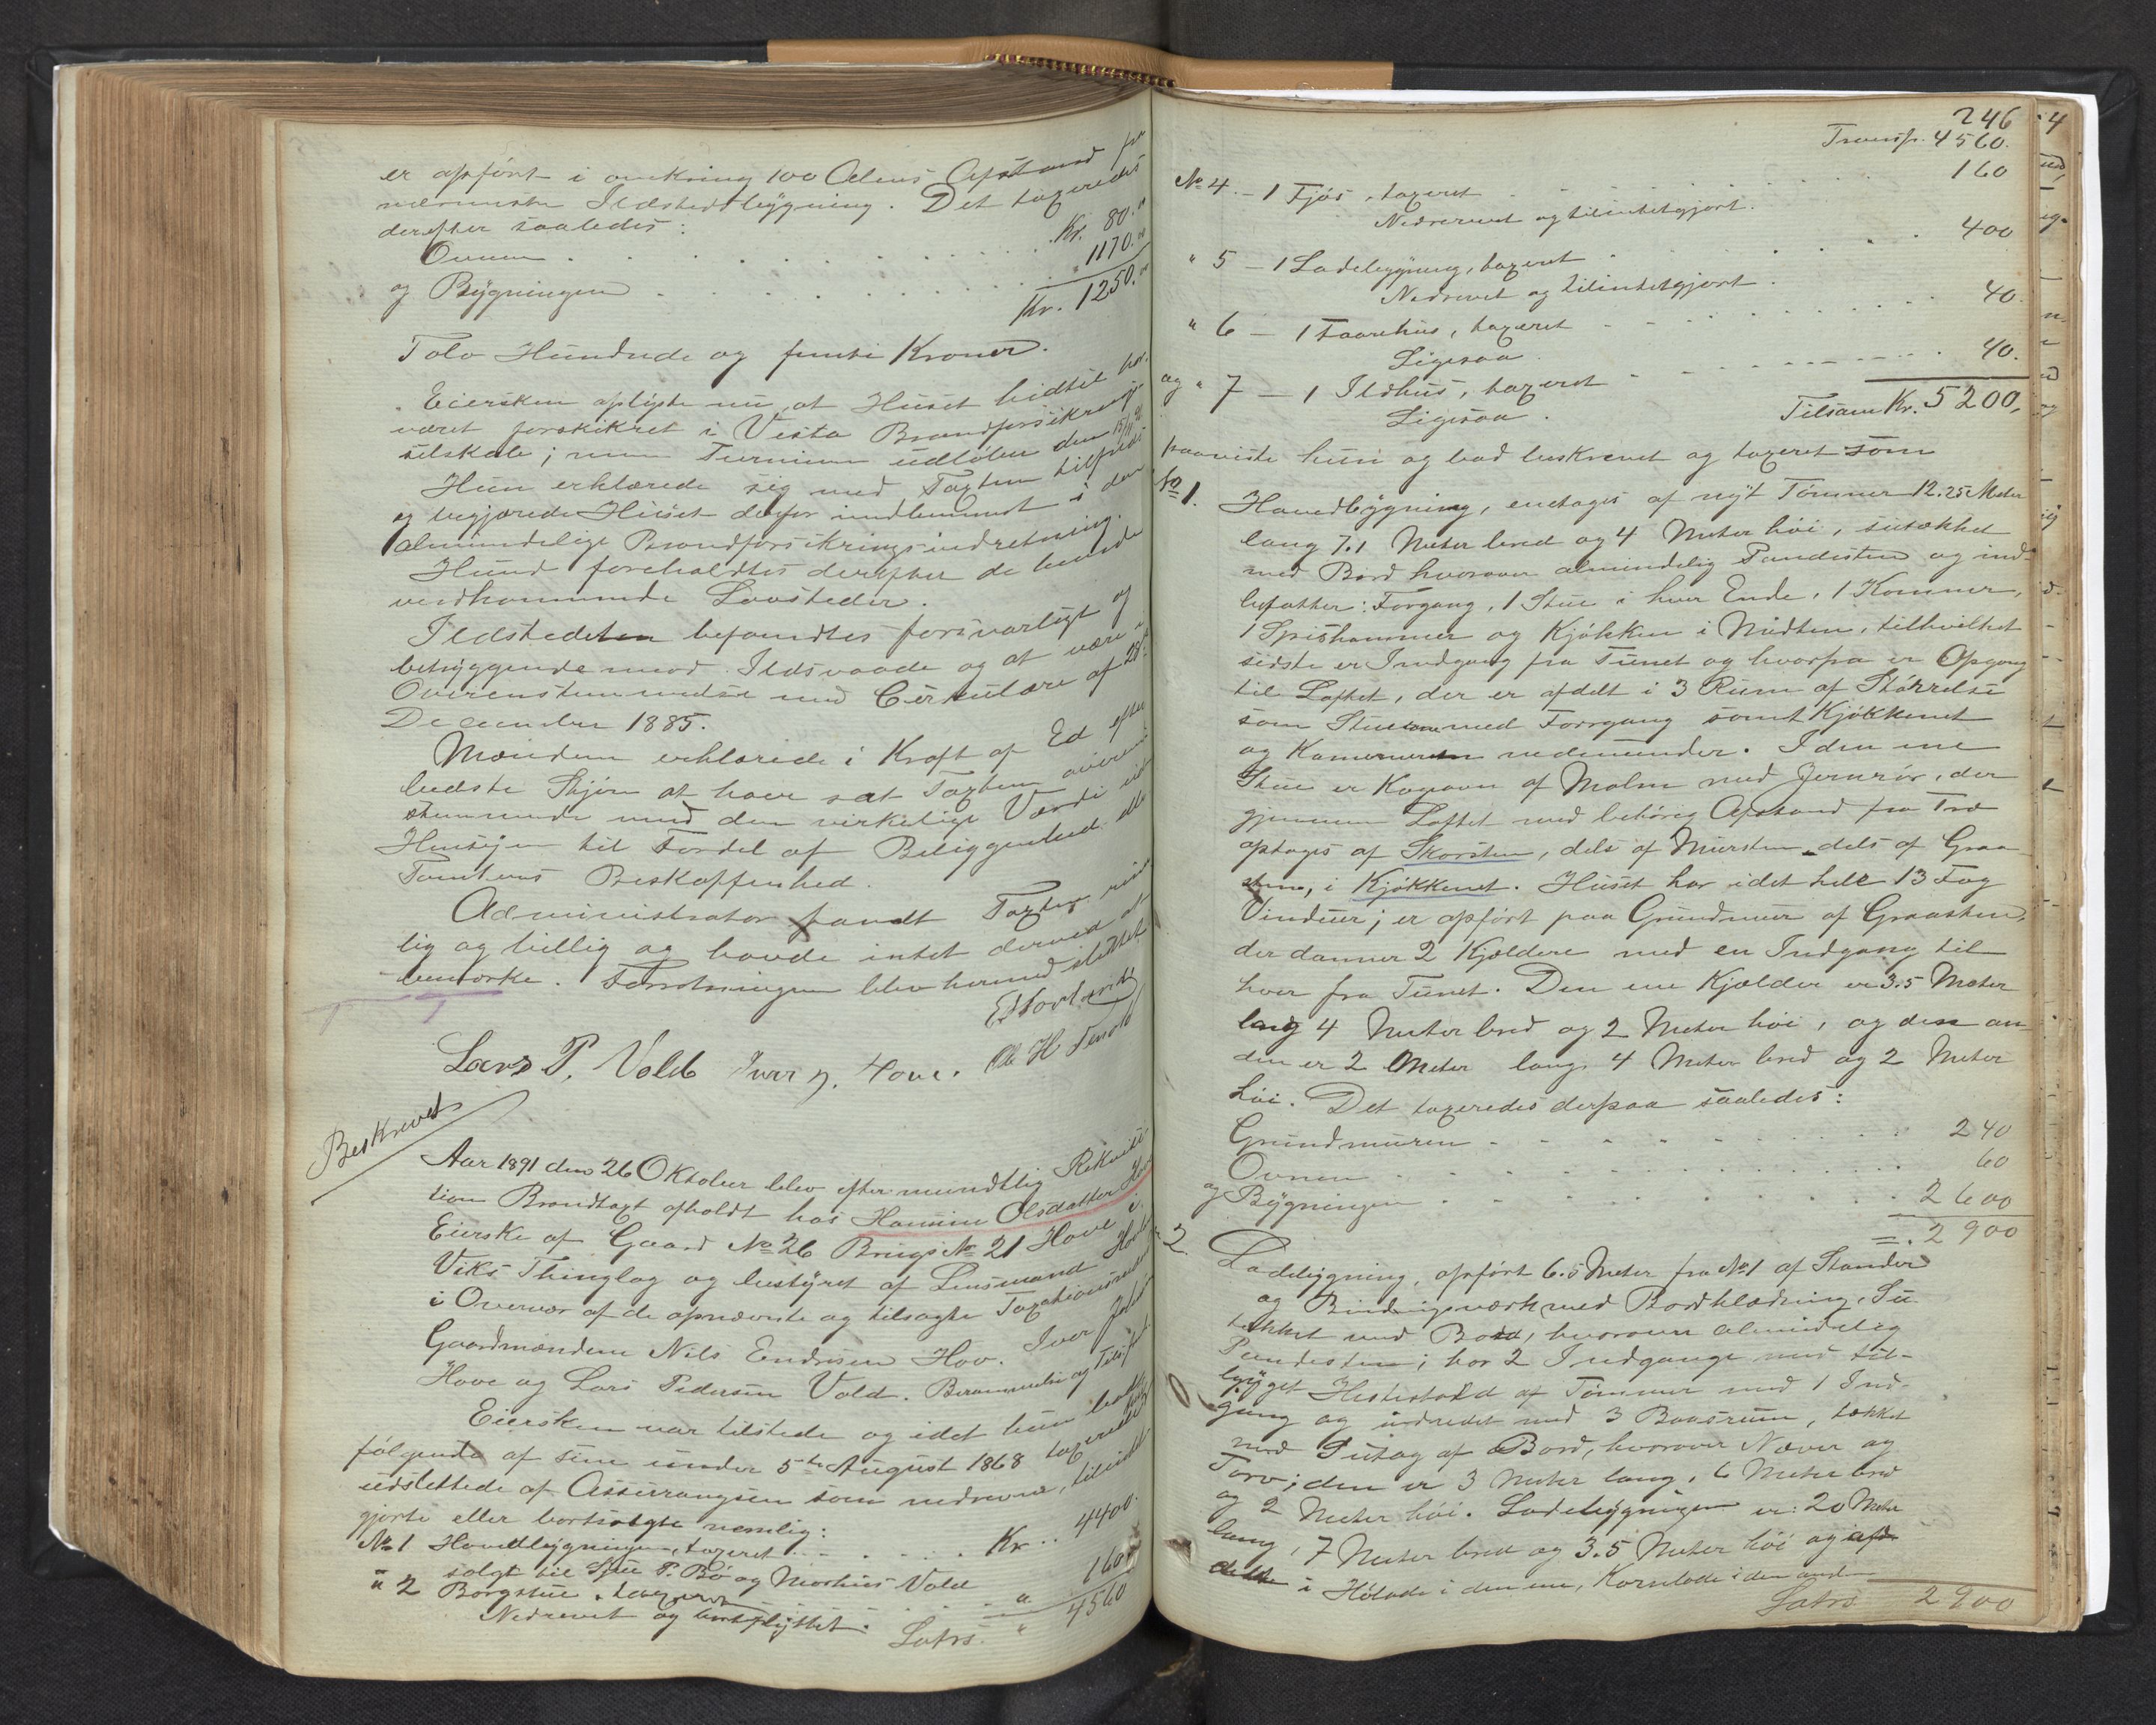 er opført i omkring 100 Alens Afstand fra
nærmeste Ildstedsbygning. Det taxeredes
derefter saaledes:
Ovnen . . . . . . . . Kr. 80.00
og Bygningen . . . . . . . " 1170.00
Kr. 1250.00
Tolv Hundrede og femti Kroner.
Eiersken oplyste nu, at Huset hidtil har
været forsikret i Vesta Brandforsikrings-
selskab; men Terminen udløber den 15/11 91
Hun erklærede sig med Taxten tilfreds
og begjærede Huset derfor indlemmet i den
almindelige Brandforsikringsindretning.
Hund foreholdtes derefter de herude
vedkommende Lovsteder.
Ildstedeten befandtes forsvarligt og
betryggende mod Ildsvaade og at være i
Overensstemmelse med Cirkulære af 28de
December 1885.
Mændene erklærede i Kraft af Ed efter
bedste Skjøn at have sat Taxten overens
stemmende med den virkelige Værdi uden
Hensyn til Fordel af Beliggenhed eller
Tomtens Beskaffenhed.
Administrator fandt Taxten rime
lig og billig og havde intet derved at
bemærke. Forretningen blev hermed sluttet
E Hovland
Lars P. Vold Iver J. Hove. Ole H Tenold
Beskrevet
Aar 1891 den 26 Oktober blev efter mundtlig Rekvisi
tion Brandtaxt afholdt hos Hannine Olsdatter Hove
Eierske af Gaard No 26 Brugs No 21 Hove i
Viks Thinglag og bestyret af Lensmand Hovland
i Overvær af de opnævnte og tilsagte Taxationsmænd
Gaardmændene Nils Endresen Hov. Iver Johns
Hove og Lars Pedersen Vold. Berammelse og Tilsigelse
Eiersken var tilstede og idet hun bad
følgende af sine under 5te August 1868 taxerede Huse
udslettede af Assurancen som nedrevne, tilintet
gjorte eller bortsolgte nemlig:
No 1 Hovedbygningen, taxeret . . . . . Kr. . 4400.
solgt til Sjur P. Bø og Markus Vold
" 2 Borgstue, taxeret . . . . . " 160
Nedrevet og bortflyttet.
Latrs. " 4560
246
Transp. 4560.
No 4. - 1 Fjøs, taxeret . . . . . 160
Nedrevet og tilintetgjort.
" 5 - 1 Ladebygning, taxeret . . . . . 400
Nedrevet og tilintetgjort.
" 6 - 1 Faarehus, taxeret . . . . . 40.
Ligesaa.
og " 7 - 1 Ildhus, taxeret . . . . . 40.
Ligesaa.
Tilsam Kr. 5200,
paaviste hun og bad beskrevet og taxeret som
No 1. Hovedbygning, enetages af nyt Tømmer 12.25 Meter
lang 7.1 Meter bred og 4 Meter høi, sutækket
med Bord hvorover almindelig Pandesten og ind-
befatter: Forgang, 1 Stue i hver Ende, 1 Kammer,
1 Spiskammer og Kjøkken i Midten, tilhvilket
sidste er Indgang fra Tunet og hvorfra er Opgang
til Loftet, der er afdelt i 3 Rum af Størrelse
som Stuerne med Forrgang samt Kjøkkenet
og Kamerseren nedenunder. I den ene
Stue er Kogeovn af Malm med Jernrør, der
gjennem Loftet med behørig Afstand fra Træ
optages af Skorsten, dels af Mursten dels af Graa
sten, i Kjøkkenet. Huset har idet hele 13 Fag
Vinduer; er opført paa Grundmur af Graasten,
der danner 2 Kjældere med en Indgang til
hver fra Tunet. Den ene Kjælder er 3.5 Meter
lang 4 Meter bred og 2 Meter høi, og den an
den er 2 Meter lang, 4 Meter bred og 2 Meter
høi. Det taxeredes derpaa saaledes:
Grundmuren . . . . . . . 240
Ovnen . . . . . . . 60
og Bygningen . . . . . . . 2600
=. 2900
2 Ladebygning, opført 6.5 Meter fra No 1 af Stander
og Bindingsværk med Bordklædning, Su
tækket med Bord, hvorover almindelig
Pandesten; har 2 Indgange med til-
bygget Hestestald af Tømmer med 1 Ind-
gang og indredet med 3 Baasrum, tækket
med Sutag af Bord, hvorover Næver og
Torv; den er 3 Meter lang, 6 Meter bred
og 2 Meter høi. Ladebygningen er: 20 Meter
lang, 7 Meter bred og 3.5 Meter høi og afd
delt i Hølade i den ene, Kornlade i den anden
Latrs 2900